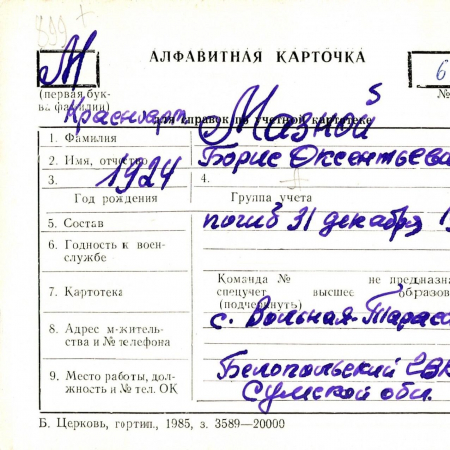 899 +
М
АЛФАВИТНАЯ КАРТОЧКА
6
(первая бук-
ва фамилии)
№
Красноарм.
для справок по учетной картотеке
1. Фамилия Мазной
2. Имя, отчество Борис Оксентьева
3. 1924 4.
Год рождения Группа учета
5. Состав погиб 31 декабря 1
6. Годность к воен-
службе
Команда № не предназна
7. Картотека спецучет высшее образов
(подчеркнуть)
8. Адрес м-житель- с. Вольная-Тарасо
ства и № телефона
9. Место работы, дол- Белопольский
жность и № тел. ОК Сумской обл.
Б. Церковь, гортип., 1985, з. 3589—20000